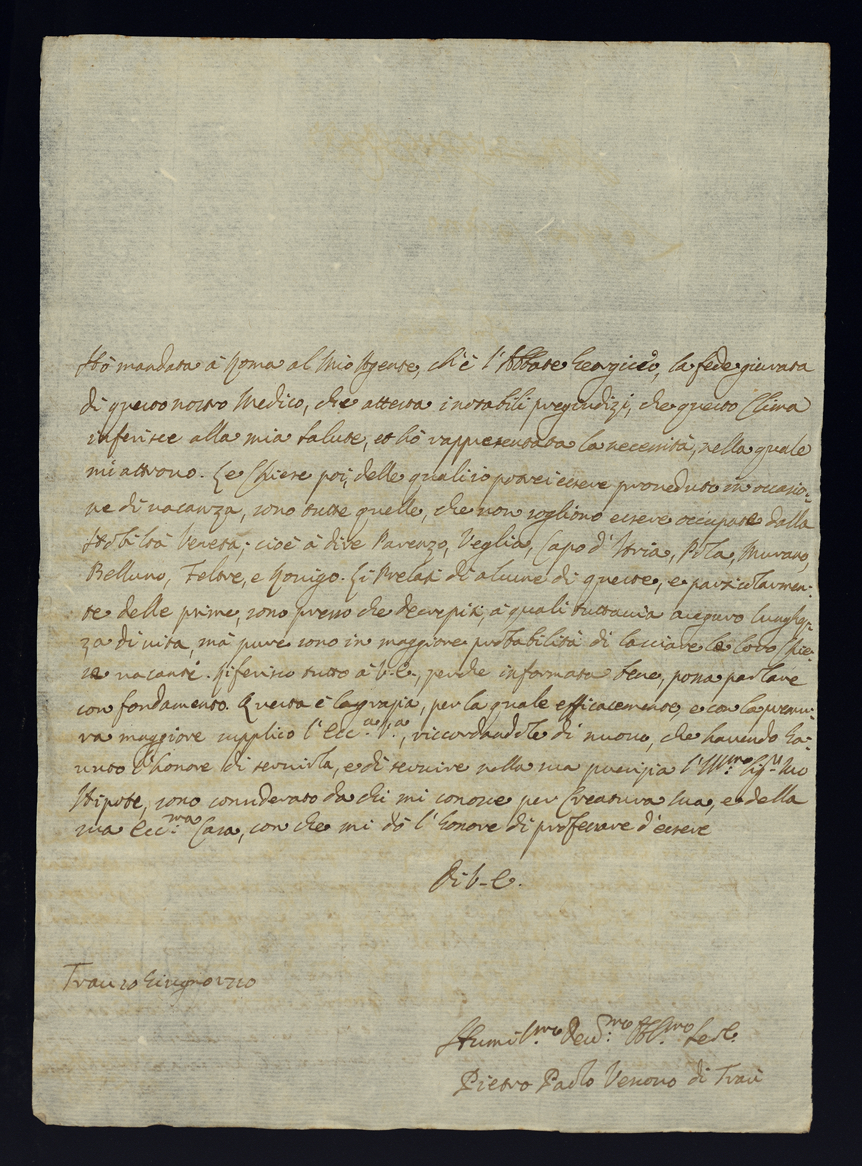 Hò mandata à Roma al mio Agente, ch'è l'Abbate Georgiceo, la fede giurata
di questo nostro Medico, che attesta i notabili pregiudizi, che questo Clima
inferisce alla mia salute, et hò rappresentata la necessità, nella quale
mi attrovo. Le Chiese poi, delle quali io potrei essere proveduto in occasio-
ne di vacanza, sono tutte quelle, che non sogliono essere occupate dalla
Nobiltà Veneta; cioè à dire Parenzo, Veglia, Capo d'Istria, Pola, Murano,
Belluno, Feltre, e Rovigo. Li Prelati di alcune di queste, e particolarmen-
te delle prime, sono presso che decrepiti, à quali tuttavia auguro lunghez-
za di vita, mà pure sono in maggiore probabilità di lasciare le loro Chie-
se vacanti. Riferisco tutto à V.E., perche informata bene, possa parlare
con fondamento. Questa è la grazia, per la quale efficacemente, e con la premu-
ra maggiore supplico l'Ecc.a V.a, riccordandole di nuovo, che havendo ha-
vuto l'honore di servirla, e di servire nella sua puerizia l'Ill.mo Sig.r suo
Nipote, sono considerato da chi mi conosce per Creatura sua, e della
sua Ecc.ma Casa, con che mi dò l'honore di professare d'essere
Di V.E.
Traù 20 Giugno 1720
Humil.mo Dev.mo Obl.mo Ser.e
Pietro Paolo Vescovo di Traù